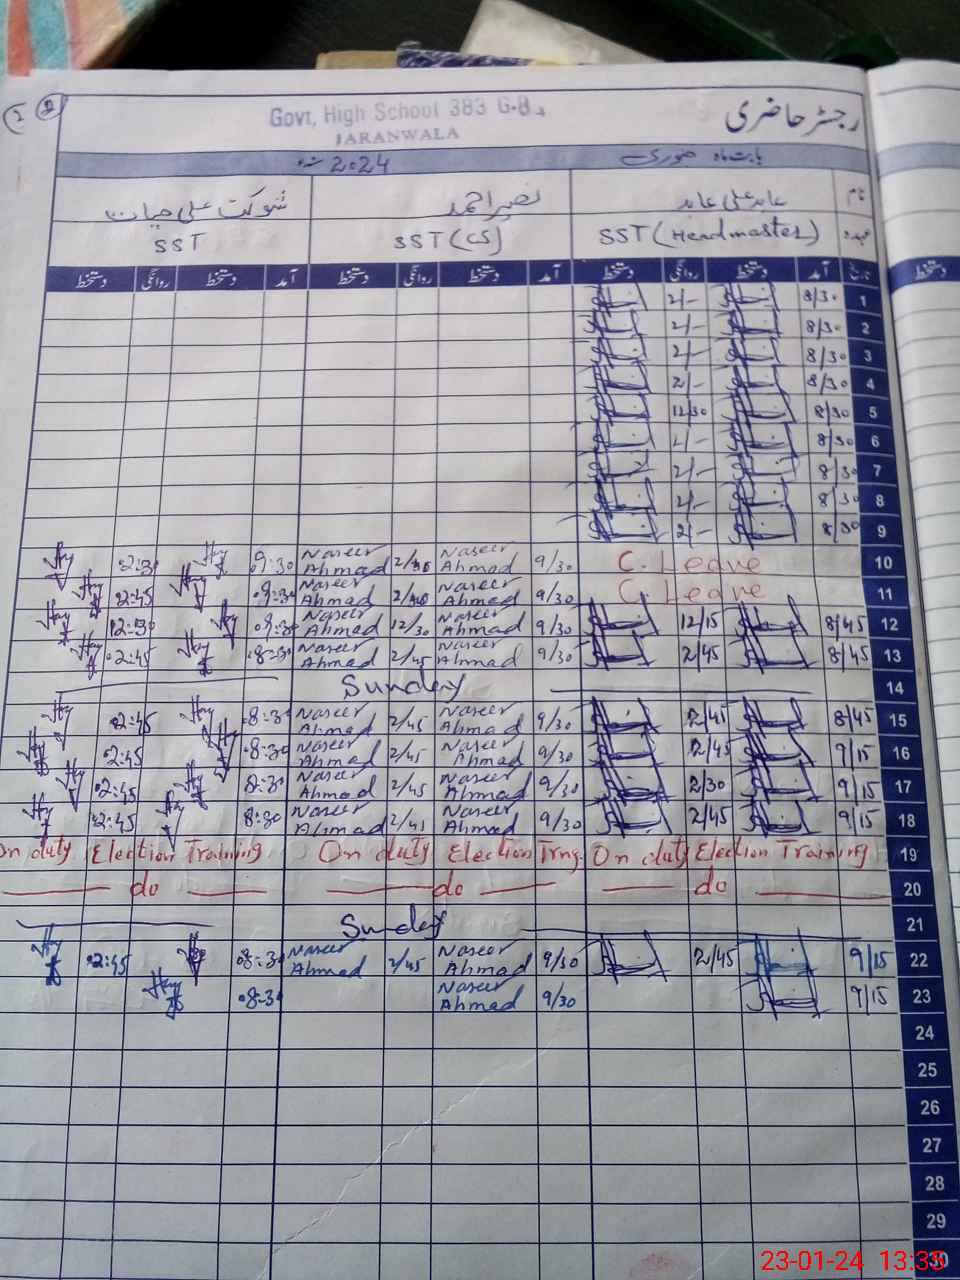 Govt, High School 383 G.B.
JARANWALA
رجسٹر حاضری
بابت ماہ جنوری 2024
نام عابد علی عابد نصیر احمد شوکت علی حیات
عہدہ SST (Headmaster) SST (CS) SST
تاریخ آمد دستخط روانگی دستخط آمد دستخط روانگی دستخط آمد دستخط روانگی دستخط دستخط
2/- 8/30 1
2/- 8/30 2
2/- 8/30 3
2/- 8/30 4
12/30 8/30 5
2/- 8/30 6
2/- 8/30 7
2/- 8/30 8
2/- 8/30 9
2:30 9:30 Naseer Ahmad Naseer Ahmad 9/30 C. Leave 10
2:45 Naseer Ahmad Naseer Ahmad 9/30 C. Leave 11
12:30 Naseer Ahmad 12/30 Naseer Ahmad 9/30 12/15 8/45 12
2:45 8:30 Naseer Ahmad 2/45 Naseer Ahmad 9/30 2/45 8/45 13
Sunday 14
2:45 8:30 Naseer Ahmad 2/45 Naseer Ahmad 9/30 2/45 8/45 15
2:45 8:30 Naseer Ahmad 2/45 Naseer Ahmad 9/30 2/45 9/15 16
2:45 8:30 Naseer Ahmad 2/45 Naseer Ahmad 9/30 2/30 9/15 17
2:45 8:30 Naseer Ahmad 2/45 Naseer Ahmad 9/30 2/45 9/15 18
On duty Election Training On duty Election Trng. On duty Election Training 19
do do do 20
Sunday 21
2:45 8:30 Naseer Ahmad 2/45 Naseer Ahmad 9/30 2/45 9/15 22
8:30 Naseer Ahmad 9/30 9/15 23
24
25
26
27
28
29
30
23-01-24 13:35